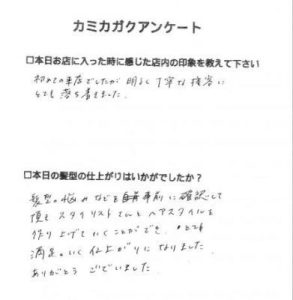 カミカガクアンケート
□本日お店に入った時に感じた店内の印象を教えて下さい
初めての来店でしたが 明るく丁寧な接客に
とても落ち着きました.
□本日の髪型の仕上がりはいかがでしたか?
髪型の悩みなどを事前に確認して
頂き スタイリストさんとヘアスタイルを
作り上げていくことができ、とても
満足のいく仕上がりになりました.
ありがとうございました.